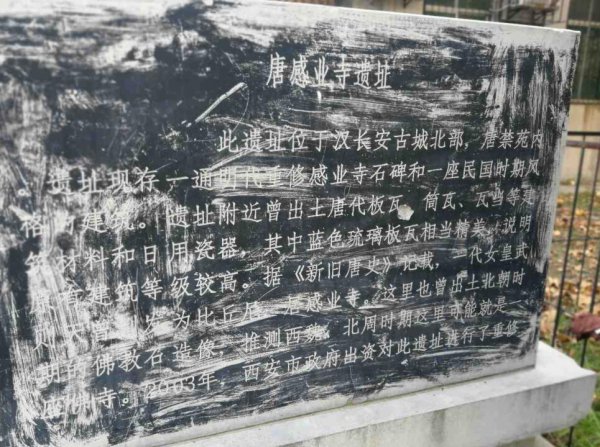 唐感业寺遗址
此遗址位于汉长安古城北部，唐禁苑内
。遗址现存一通明代重修感业寺石碑和一座民国时期风
格 建筑。遗址附近曾出土唐代板瓦、筒瓦、瓦当等建
筑材料和日用瓷器，其中蓝色琉璃板瓦相当精美，说明
建筑等级较高。据《新旧唐史》记载，一代女皇武
为比丘尼 感业寺。这里也曾出土北朝时
期 佛教石造像，推测西魏、北周时期这里可能就是
寺。2003年，西安市政府出资对此遗址进行了重修